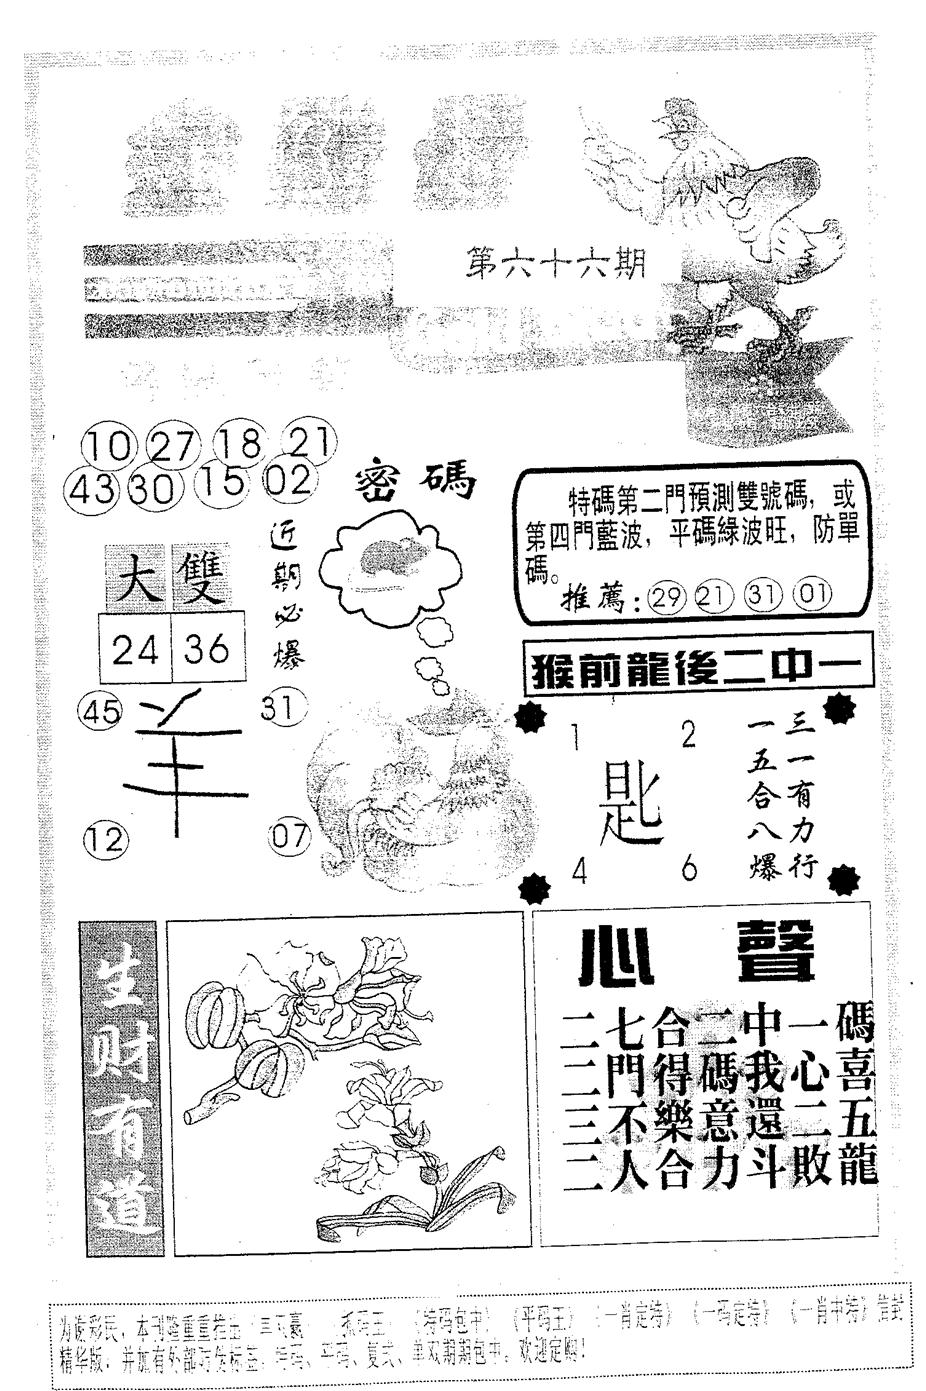 第六十六期
10 27 18 21
43 30 15 02
密碼
特碼第二門預測雙號碼，或
第四門藍波，平碼綠波旺，防單
碼。
推薦：29 21 31 01
近期必爆
大 雙
24 36
猴前龍後二中一
45 31
羊
12 07
1 2
匙
4 6
三一有力行
一五合八爆
生財有道
心聲
二七合二中一碼
二門得碼我心喜
三不樂意還二五
二人合力斗敗龍
彩民，本刊隆重推出 《特码包中》《平码王》《一肖定特》《一码定特》《一肖中特》
精华版，并加有外部 特码、平码、复式、单双期期包中。欢迎定购！